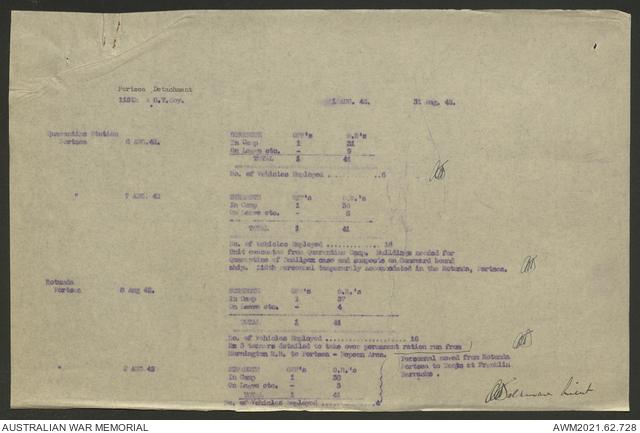 Portsea Detachment
118th G.T.Coy. AUG. 42. 31 Aug. 42.
Quarantine Station STRENGTH OFF's O.R's
Portsea 6 AUG.42. In Camp 1
On Leave etc. - 9
TOTAL 1 41
No. of Vehicles Employed ............6
" 7 AUG. 42 STRENGTH OFF's O.R.'s
In Camp 1
On Leave etc. - 6
TOTAL 1 41
No. of Vehicles Employed ............... 16
Unit evacuated from Quarantine Camp. Buildings needed for
Quarantine of Smallpox case and suspects on homeward bound
ship. 118th personnel temporarily accommodated in the Rotunda, Portsea.
Rotunda STRENGTH OFF's O.R.'s
Portsea 8 Aug 42. In Camp 1 37
On Leave etc. - 4
TOTAL 1 41
No. of Vehicles Employed ............... 16
3 tonners detailed to take over permanent ration run from
Mornington R.H. to Portsea - Nepean Area.
Personnel moved from Rotunda
Portsea to Tents at Franklin
Barracks .
" 9 AUG.42 STRENGTH OFF's O.R.'s
In Camp 1 38
On Leave etc. - 3
TOTAL 1 41
No. of Vehicles Employed
Lieut
AUSTRALIAN WAR MEMORIAL AWM2021.62.728